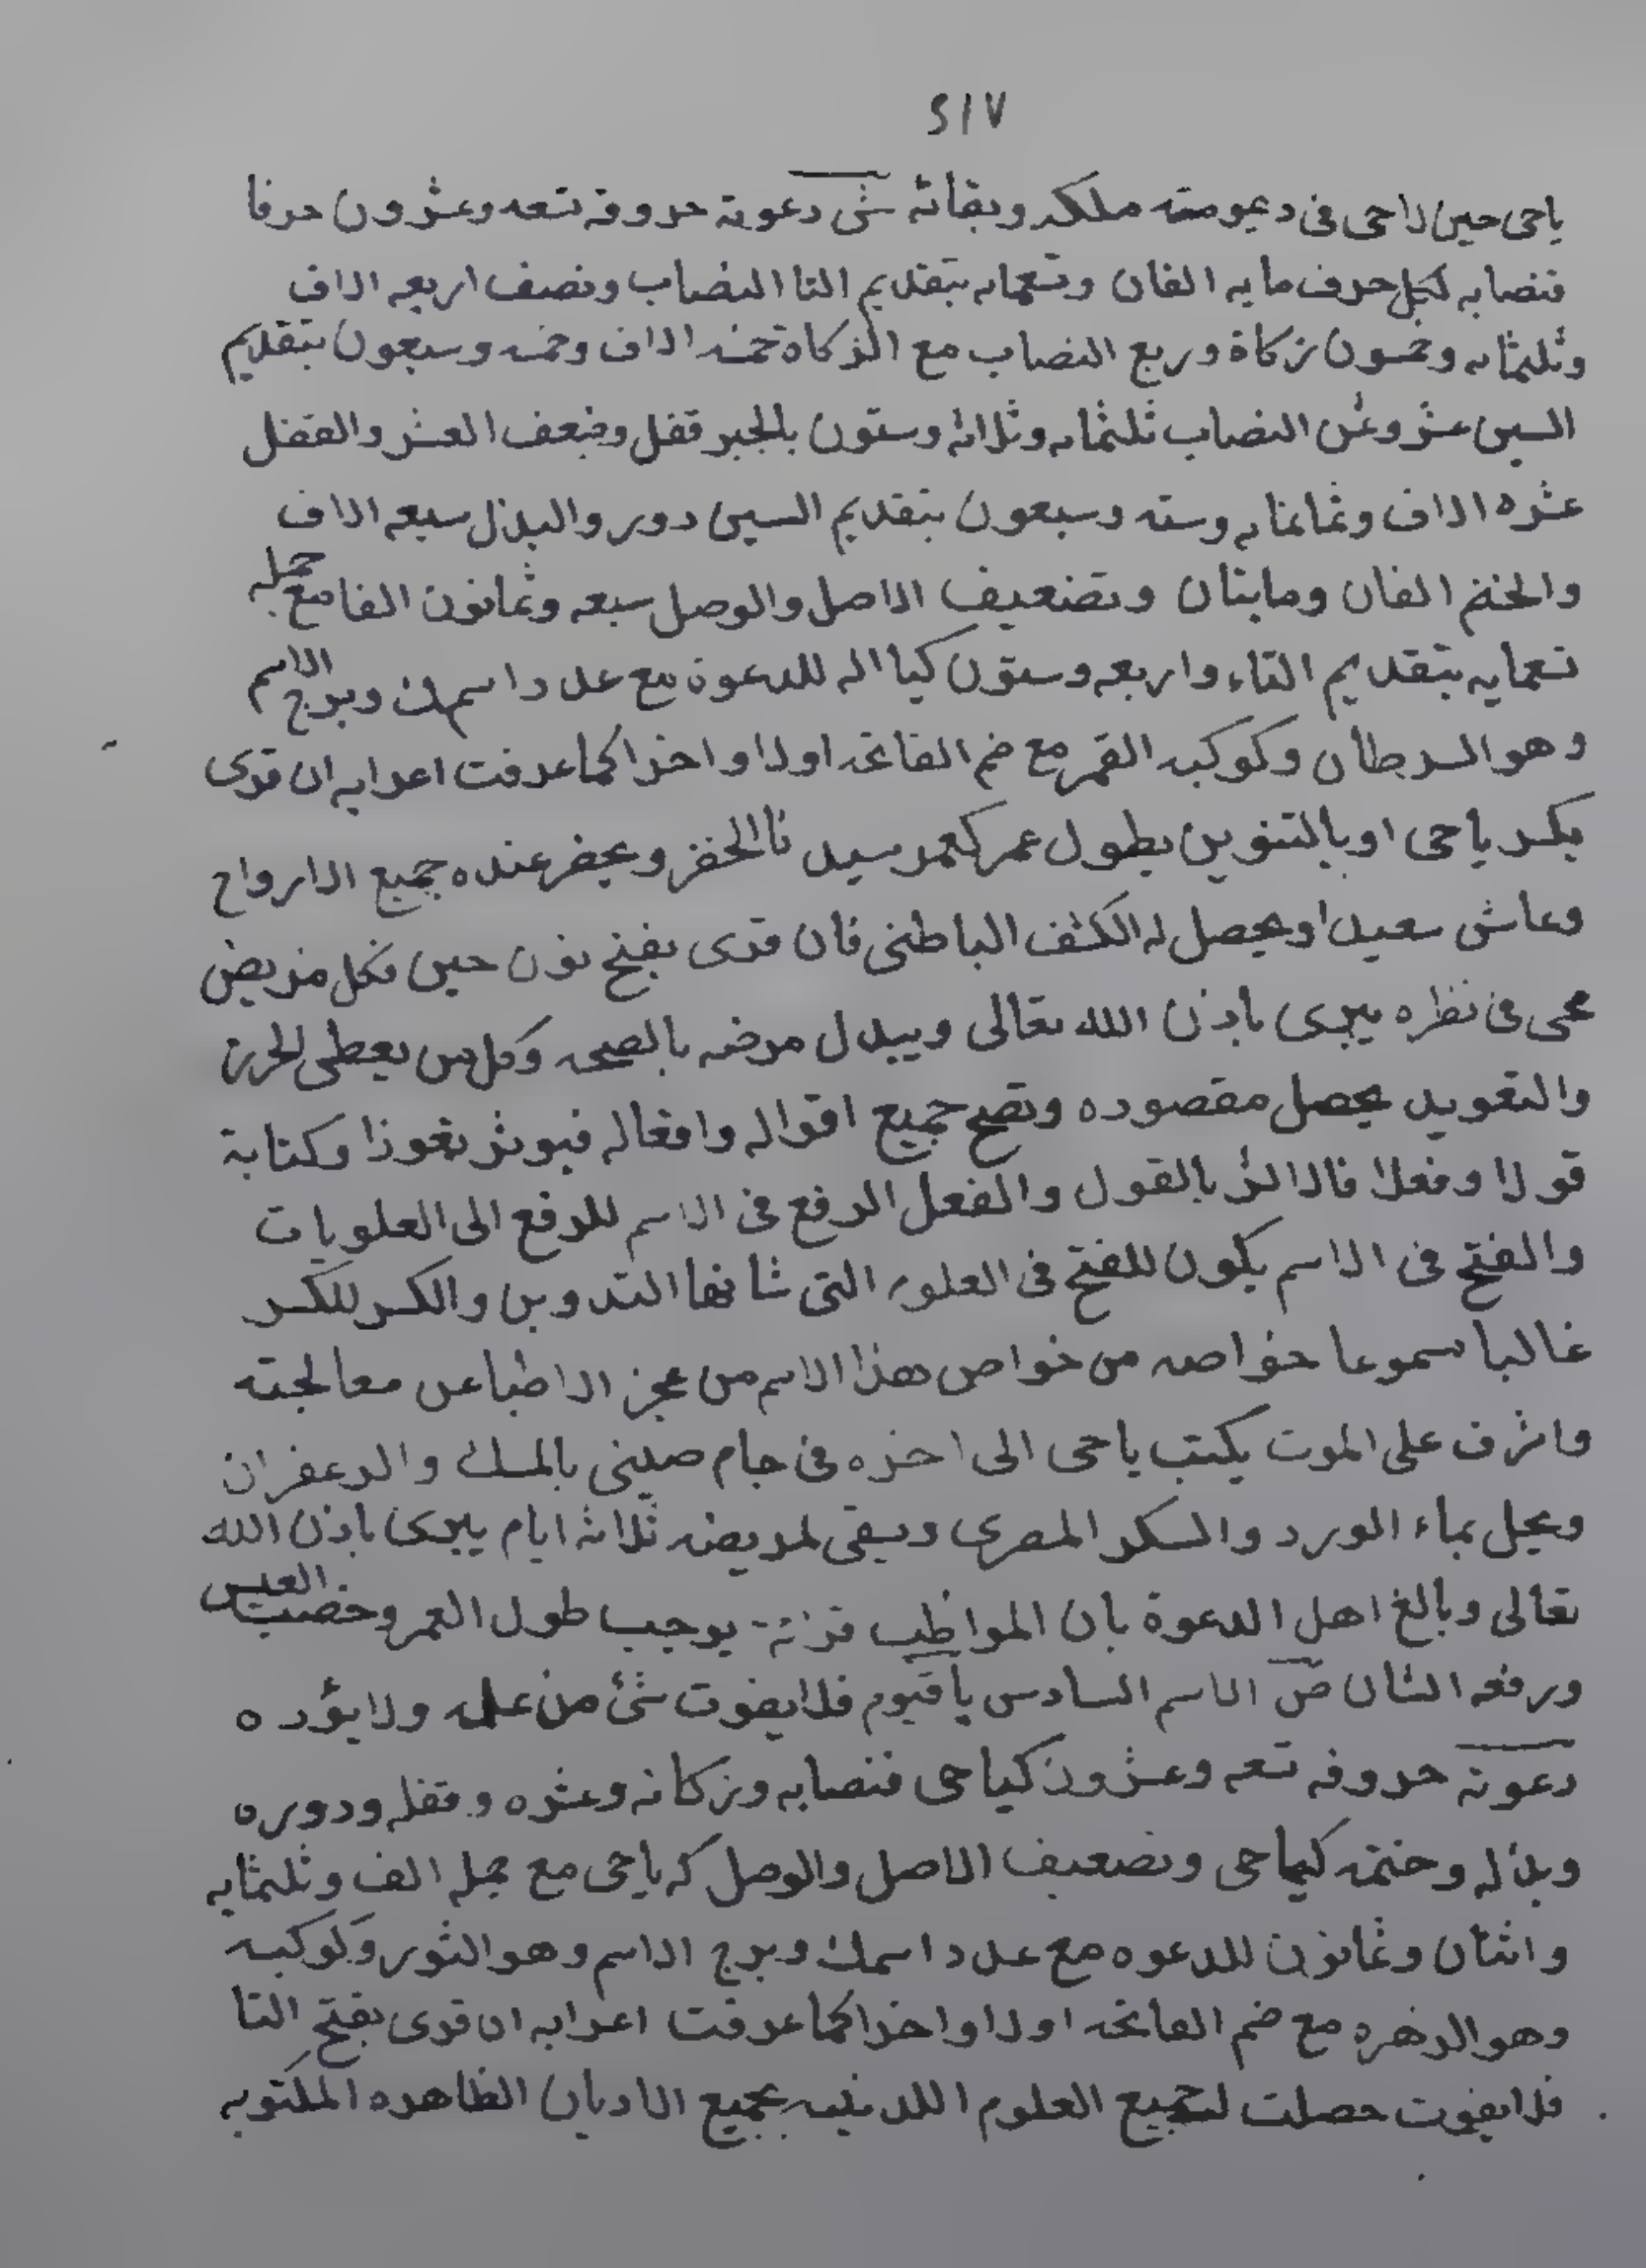 ٢١٧
ياحى حين لاحى فى ديمومته ملكه وبقائه شى دعوته حروفه تسعه وعشرون حرفا
فنصابه لكل حرف مايه الفان وتسعمايه بتقديم التا النصاب ونصف اربعه الاف
وثلثمايه وخمسون زكاة وربع النصاب مع الزكاة خمسه الاف وخمسه وسبعون بتقديم
السين عشر وثمن النصاب ثلثمايه وثلاثه وستون بالجبر قفل وضعف العشر والقفل
عشره الاف وثمانمايه وسته وسبعون بتقديم السين دور والبذل سبعه الاف
والختم الفان ومايتان وتضعيف الاصل والوصل سبعه وثمانون الفا مع جمله
تسعمايه بتقديم التاء واربعه وستون كيا اله للدعوة مع عدد اسمك وبرج الاسم
وهو السرطان وكوكبه القمر مع ضم الفاتحه اولا واخرا كما عرفت اعرابه ان قرى
بكسر ياحى او بالتنوين يطول عمر كعمر سيدنا الخضر ويحضر عنده جميع الارواح
وعاش سعيدا ويحصل له الكشف الباطنى فان قرى بفتح نون حين فكل مريض
يحى فى نظره يبرى باذن الله تعالى ويبدل مرضه بالصحه وكل من يعطى الحرز
والتعويد يحصل مقصوده وتصح جميع اقواله وافعاله فيوثر تعوذا وكتابة
قولا وفعلا فالاثر بالقول والفعل الرفع فى الاسم للرفع الى العلويات
والفتح فى الاسم يكون للفتح فى العلوم التى شانها التدوين والكسر للكسر
غالبا سموعا خواصه من خواص هذا الاسم من عجز الاطبا عن معالجته
واشرف على الموت يكتب ياحى الى اخره فى جام صينى بالمسك والزعفران
ويحل بماء الورد والسكر المصرى ويسقى لمريضه ثلاثه ايام يبرى باذن الله
تعالى وبالغ اهل الدعوة بان المواظب قرائة يوجب طول العمر وخصب العيس
ورفعه الشان ص الاسم السادس ياقيوم فلا يفوت شئ من علمه ولا يؤده
دعوته حروفه تسعه وعشرون كياحى فنصابه وزكاته وعشره وقفله ودوره
وبذله وختمه كياحى وتضعيف الاصل والوصل كه ياحى مع جمله الف وثلثمايه
واثنان وثمانون للدعوه مع عدد اسمك وبرج الاسم وهو الثور وكوكبه
وهو الزهره مع ضم الفاتحه اولا واخرا كما عرفت اعرابه ان قرى بفتح التا
فلا يفوت حصلت لجميع العلوم اللدنيه بجميع الاديان الظاهره المكتوبه